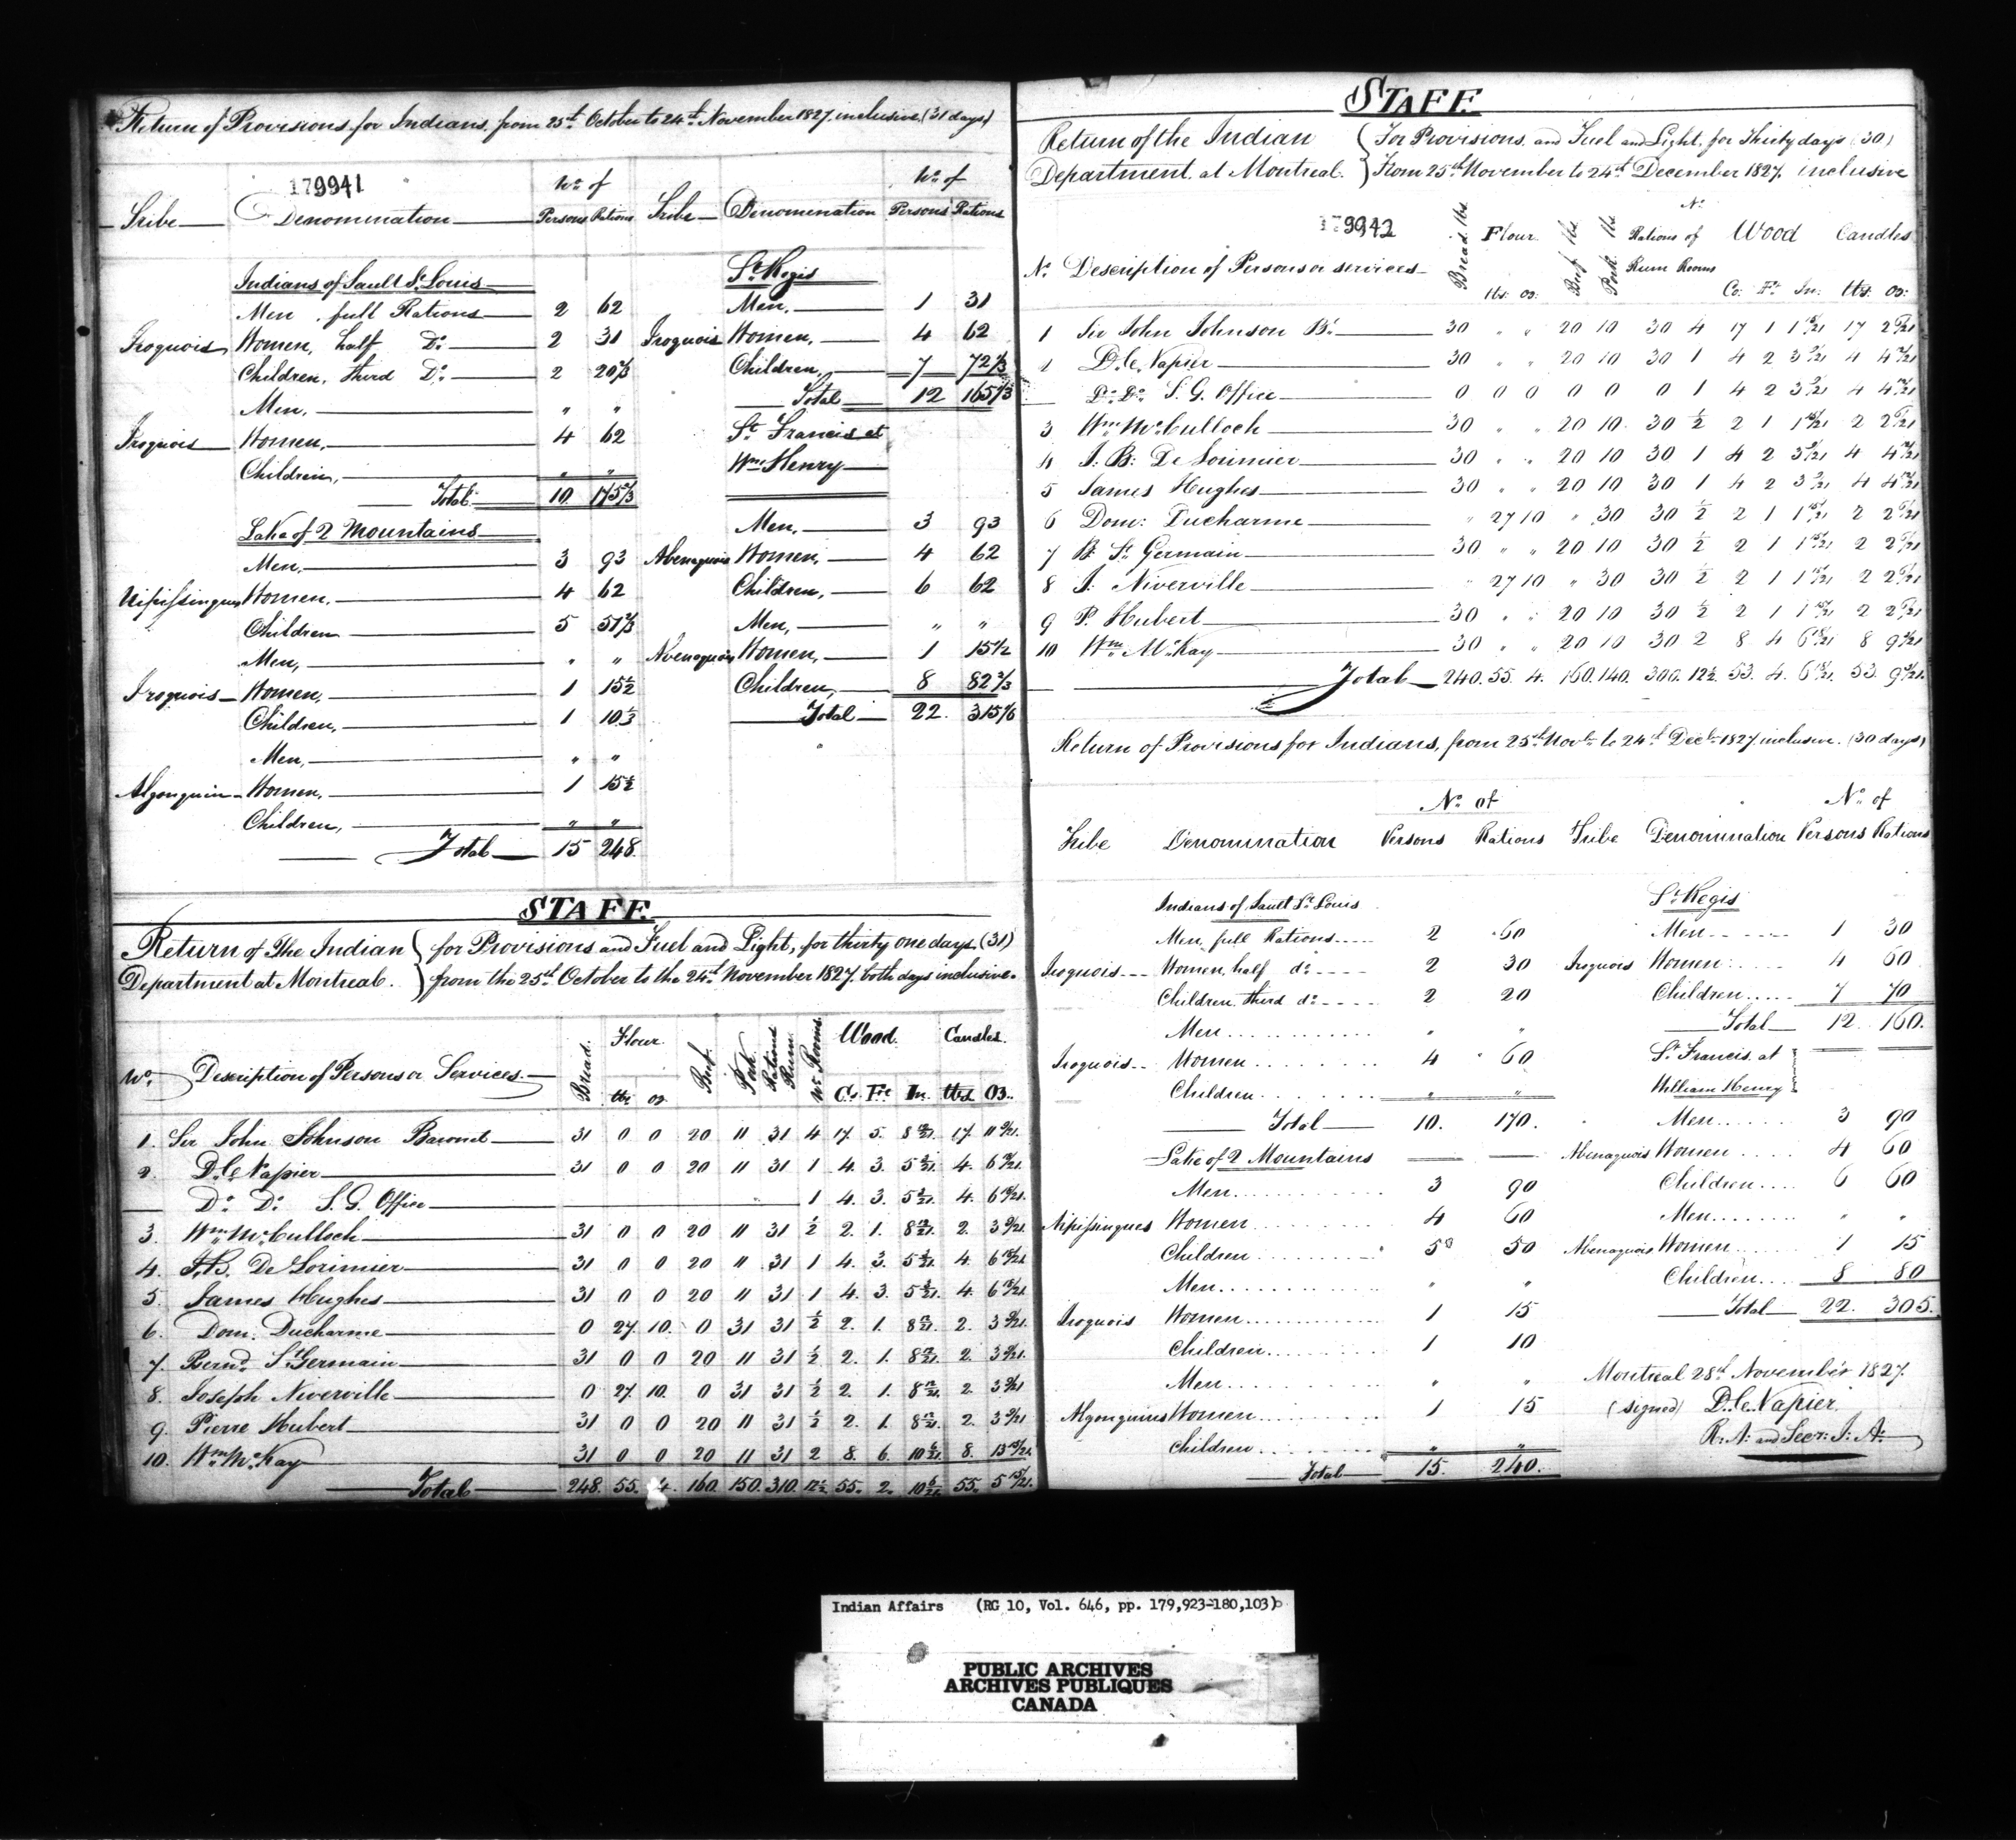 Return of Provisions for Indians, from 25th October to 24th November 1827 inclusive (31 days)
179941
Tribe Denomination No of Persons Rations Tribe Denomination No of Persons Rations
Indians of Sault St Louis
Men, full Rations 2 62
Iroquois Women, half Do 2 31
Children, third Do 2 20 2/3
Men, " "
Iroquois Women, 4 62
Children, " "
Total 10 175 2/3
Lake of 2 Mountains
Men, 3 93
Nipissingues Women, 4 62
Children 5 51 2/3
Men, " "
Iroquois Women, 1 15 1/2
Children, 1 10 1/3
Men, " "
Algonquin Women, 1 15 1/2
Children, " "
Total 15 248
St Regis
Men, 1 31
Iroquois Women, 4 62
Children, 7 72 1/3
Total 12 165 1/3
St Francis at
Wm Henry
Men, 3 93
Abenaquois Women, 4 62
Children, 6 62
Men, " "
Abenaquois Women, 1 15 1/2
Children, 8 82 2/3
Total 22. 315 1/6
STAFF.
Return of The Indian } for Provisions and Fuel and Light, for thirty one days (31)
Department at Montreal. } from the 25th October to the 24th November 1827, both days inclusive.
No. Description of Persons or Services. Bread. Flour. Beef. Pork. Rations Rum. No Rooms. Wood. Candles.
lbs oz Co. Ft. In. lbs Oz.
1. Sir John Johnson Baronet 31 0 0 20 11 31 4 17. 5. 8 17. 11
2. D.C. Napier 31 0 0 20 11 31 1 4. 3. 5 4. 6
Do Do S.G. Office 1 4. 3. 5 4. 6
3. Wm McCulloch 31 0 0 20 11 31 1/2 2. 1. 8 2. 3
4. J.B. De Lorimier 31 0 0 20 11 31 1 4. 3. 5 4. 6
5. James Hughes 31 0 0 20 11 31 1 4. 3. 5 4. 6
6. Dom. Ducharme 0 27. 10. 0 31 31 1/2 2. 1. 8 2. 3
7. Bernd St Germain 31 0 0 20 11 31 1/2 2. 1. 8 2. 3
8. Joseph Niverville 0 27. 10. 0 31 31 1/2 2. 1. 8 2. 3
9. Pierre Hubert 31 0 0 20 11 31 1/2 2. 1. 8 2. 3
10. Wm McKay 31 0 0 20 11 31 2 8. 6. 10 8. 13
Total 248. 55. 4. 160. 150. 310. 12 1/2 55. 2. 10 55. 5
STAFF.
Return of the Indian { For Provisions, and Fuel and Light, for Thirty days (30)
Department, at Montreal. } From 25th November to 24th December 1827, inclusive
179942
No Description of Persons or services Bread lbs. Flour lbs: oz: Beef lbs Pork lbs Rations of Rum No Rooms Wood Co: Ft: In: Candles lbs: oz:
1 Sir John Johnson Bt 30 " " 20 10 30 4 17 1 1 17 2
2 D.C. Napier 30 " " 20 10 30 1 4 2 3 4 4
Do Do S.G. Office 0 0 0 0 0 0 1 4 2 3 4 4
3 Wm McCulloch 30 " " 20 10 30 1/2 2 1 1 2 2
4 J: B: De Lorimier 30 " " 20 10 30 1 4 2 3 4 4
5 James Hughes 30 " " 20 10 30 1 4 2 3 4 4
6 Dom: Ducharme " 27 10 " 30 30 1/2 2 1 1 2 2
7 B: St Germain 30 " " 20 10 30 1/2 2 1 1 2 2
8 J: Niverville " 27 10 " 30 30 1/2 2 1 1 2 2
9 P. Hubert 30 " " 20 10 30 1/2 2 1 1 2 2
10 Wm McKay 30 " " 20 10 30 2 8 4 6 8 9
Total 240. 55. 4. 160. 140. 300. 12 1/2 53. 4. 6 53. 9
Return of Provisions for Indians, from 25th Novr to 24th Decr 1827 inclusive. (30 days)
Tribe Denomination No of Persons Rations Tribe Denomination No of Persons Rations
Indians of Sault St Louis
Men, full Rations 2 60
Iroquois Women, half do 2 30
Children, third do 2 20
Men " "
Iroquois Women 4 60
Children " "
Total 10. 170.
Lake of 2 Mountains
Men 3 90
Nipissingues Women 4 60
Children 5 50
Men " "
Iroquois Women 1 15
Children 1 10
Men " "
Algonquins Women 1 15
Children " "
Total 15. 240.
St Regis
Men 1 30
Iroquois Women 4 60
Children 7 70
Total 12. 160.
St Francis at
William Henry
Men 3 90
Abenaquois Women 4 60
Children 6 60
Men " "
Abenaquois Women 1 15
Children 8 80
Total 22. 305.
Montreal 28th November 1827.
(signed) D.C. Napier.
R: A: and Secr: I: A:
Indian Affairs (RG 10, Vol. 646, pp. 179,923-180,103)
PUBLIC ARCHIVES
ARCHIVES PUBLIQUES
CANADA